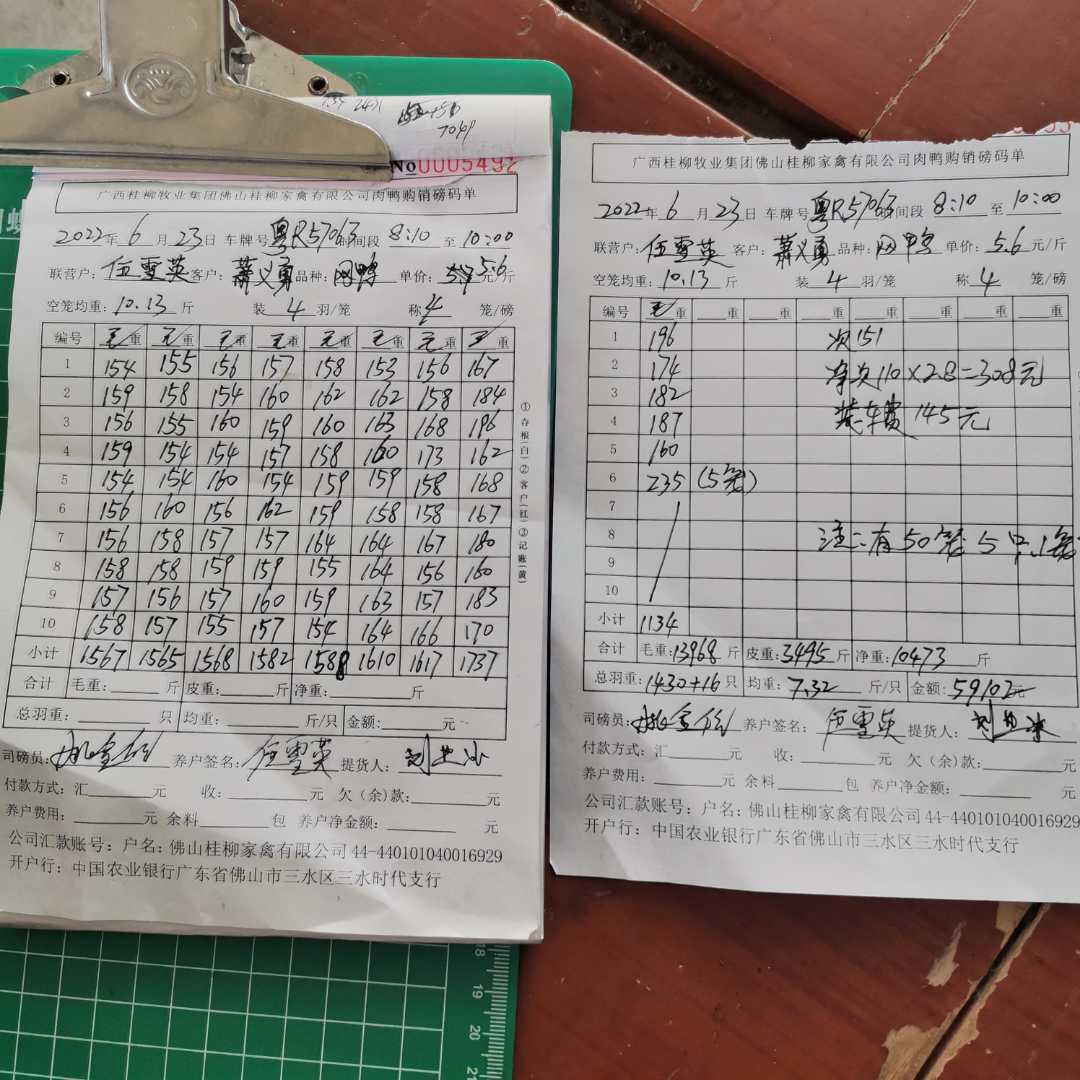 7049
No0005492
广西桂柳牧业集团佛山桂柳家禽有限公司肉鸭购销磅码单
2022年 6 月 23日 车牌号 粤R57067 时间段 8:10 至 10:00
联营户: 伍雪英 客户: 萧义勇 品种: 网鸭 单价: 5.6 元/斤
空笼均重: 10.13 斤 装 4 羽/笼 称 4 笼/磅
编号 毛重 毛重 毛重 毛重 毛重 毛重 毛重 毛重
1 154 155 156 157 158 153 156 167
2 159 158 154 160 162 162 158 184
3 156 155 160 159 160 163 168 196
4 159 154 154 157 158 160 173 162
5 154 154 160 154 159 159 158 168
6 156 160 156 162 159 158 158 167
7 156 158 157 157 164 164 167 180
8 158 158 159 159 155 164 156 160
9 157 156 157 160 159 163 157 183
10 158 157 155 157 154 164 166 170
小计 1567 1565 1568 1582 1588 1610 1617 1737
合计 毛重: 斤 皮重: 斤 净重: 斤
总羽重: 只 均重: 斤/只 金额: 元
司磅员: 养户签名: 伍雪英 提货人:
付款方式: 汇 元 收: 元 欠(余)款: 元
养户费用: 元 余料 包 养户净金额: 元
公司汇款账号: 户名: 佛山桂柳家禽有限公司 44-440101040016929
开户行: 中国农业银行广东省佛山市三水区三水时代支行
①存根(白)②客户(红)③记账(黄)
广西桂柳牧业集团佛山桂柳家禽有限公司肉鸭购销磅码单
2022年 6 月 23日 车牌号 粤R57067 时间段 8:10 至 10:00
联营户: 伍雪英 客户: 萧义勇 品种: 网鸭 单价: 5.6 元/斤
空笼均重: 10.13 斤 装 4 羽/笼 称 4 笼/磅
编号 毛重 重 重 重 重 重 重 重
1 196 次151
2 174 净次110×2.8=308元
3 182
4 187 装车费145元
5 160
6 235 (5笼)
7
8 注:有50笼5中1笼
9
10
小计 1134
合计 毛重: 13968 斤 皮重: 3495 斤 净重: 10473 斤
总羽重: 1430+16 只 均重: 7.32 斤/只 金额: 59102元
司磅员: 养户签名: 伍雪英 提货人:
付款方式: 汇 元 收: 元 欠(余)款: 元
养户费用: 元 余料 包 养户净金额: 元
公司汇款账号: 户名: 佛山桂柳家禽有限公司 44-440101040016929
开户行: 中国农业银行广东省佛山市三水区三水时代支行
18
19
20
21